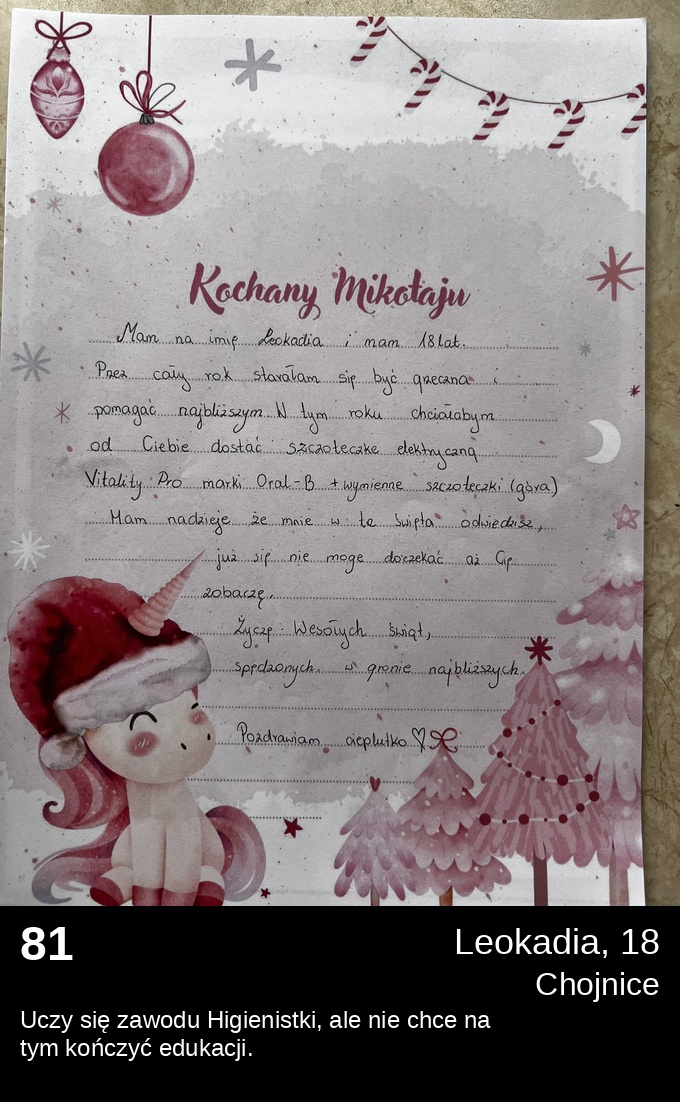 Kochany Mikołaju
Mam na imię Leokadia i mam 18 lat.
Przez cały rok starałam się być grzeczna i
pomagać najbliższym. W tym roku chciałabym
od Ciebie dostać szczoteczkę elektryczną
Vitality Pro marki Oral-B + wymienne szczoteczki (góra)
Mam nadzieję że mnie w te święta odwiedzisz,
już się nie mogę doczekać aż Cię
zobaczę.
Życzę Wesołych świąt,
spędzonych w gronie najbliższych.
Pozdrawiam cieplutko ♡
81
Leokadia, 18
Chojnice
Uczy się zawodu Higienistki, ale nie chce na
tym kończyć edukacji.